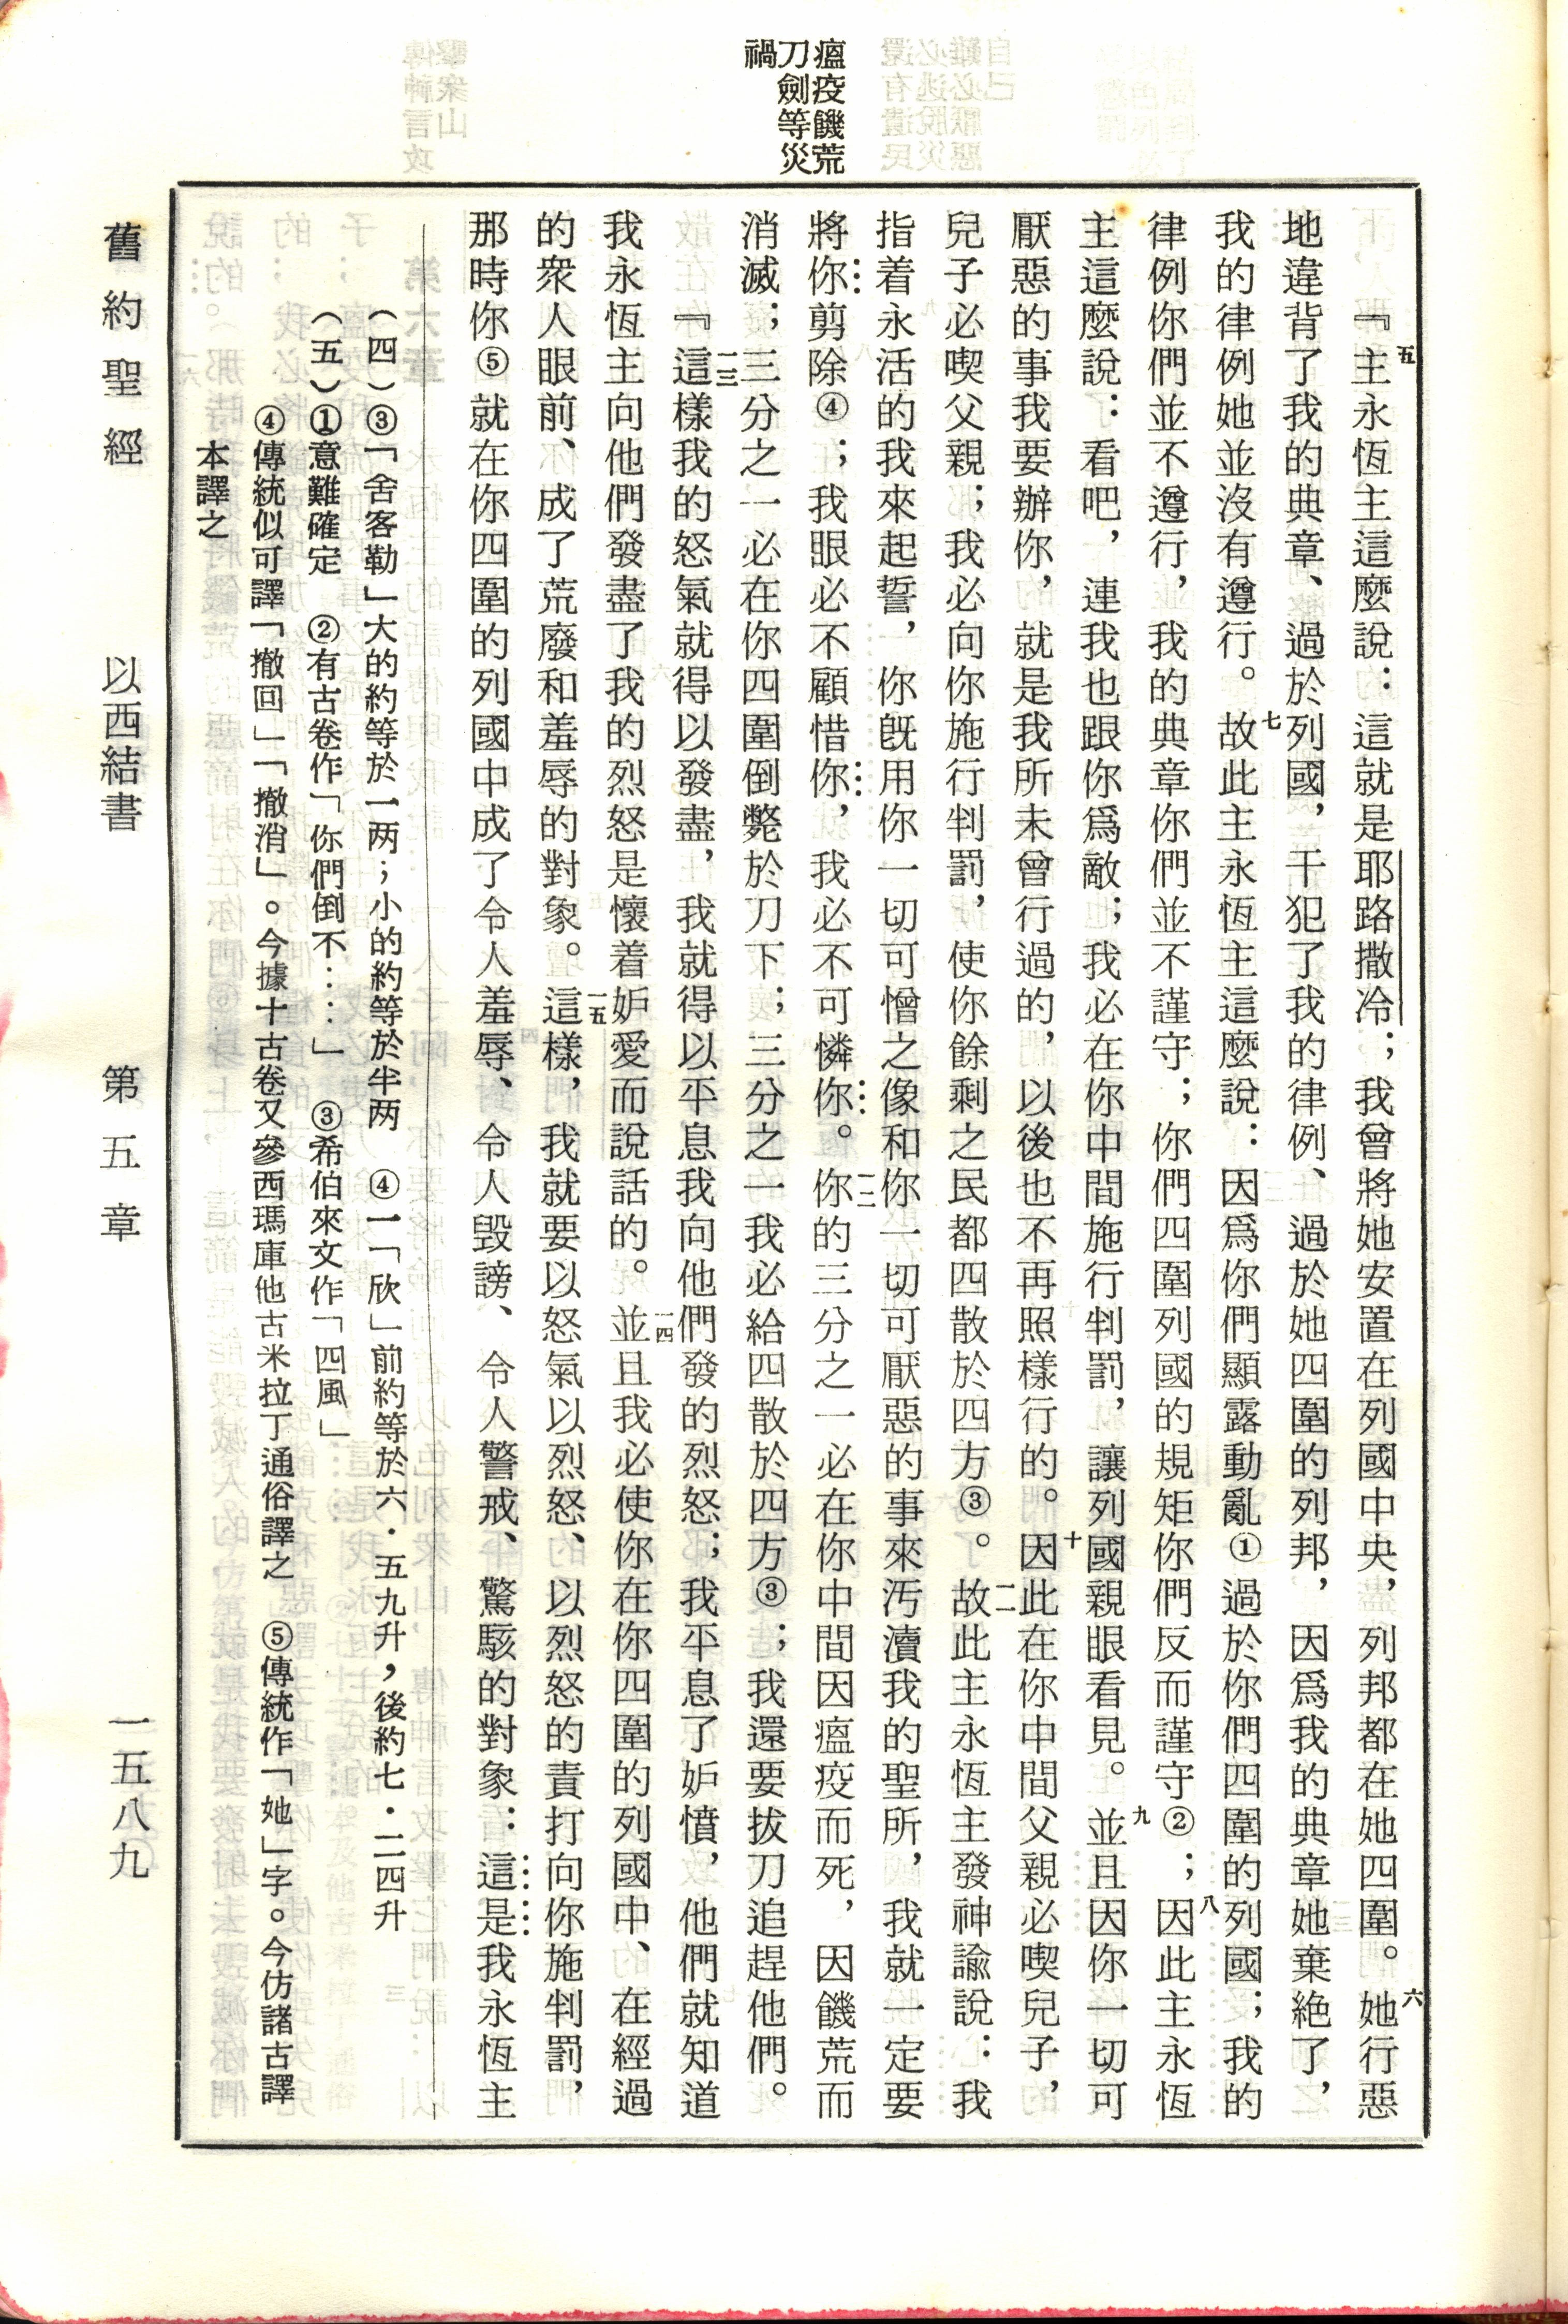 瘟疫饑荒
刀劍等災
禍
五『主永恆主這麼說：這就是耶路撒冷；我曾將她安置在列國中央，列邦都在她四圍。六她行惡
地違背了我的典章、過於列國，干犯了我的律例、過於她四圍的列邦，因爲我的典章她棄絕了，
我的律例她並沒有遵行。七故此主永恆主這麼說：因爲你們顯露動亂①過於你們四圍的列國；我的
律例你們並不遵行，我的典章你們並不謹守；你們四圍列國的規矩你們反而謹守②；八因此主永恆
主這麼說：看吧，連我也跟你爲敵；我必在你中間施行判罰，讓列國親眼看見。九並且因你一切可
厭惡的事我要辦你，就是我所未曾行過的，以後也不再照樣行的。十因此在你中間父親必喫兒子，
兒子必喫父親；我必向你施行判罰，使你餘剩之民都四散於四方③。一一故此主永恆主發神諭說：我
指着永活的我來起誓，你旣用你一切可憎之像和你一切可厭惡的事來汚瀆我的聖所，我就一定要
將你剪除④；我眼必不顧惜你，我必不可憐你。一二你的三分之一必在你中間因瘟疫而死，因饑荒而
消滅；三分之一必在你四圍倒斃於刀下；三分之一我必給四散於四方③；我還要拔刀追趕他們。
一三『這樣我的怒氣就得以發盡，我就得以平息我向他們發的烈怒；我平息了妒憤，他們就知道
我永恆主向他們發盡了我的烈怒是懷着妒愛而說話的。一四並且我必使你在你四圍的列國中、在經過
的衆人眼前、成了荒廢和羞辱的對象。一五這樣，我就要以怒氣以烈怒、以烈怒的責打向你施判罰，
那時你⑤就在你四圍的列國中成了令人羞辱、令人毀謗、令人警戒、驚駭的對象：這是我永恆主
（四）③「舍客勒」大的約等於一两；小的約等於半两　④一「欣」前約等於六．五九升，後約七．二四升
（五）①意難確定　②有古卷作「你們倒不……」　③希伯來文作「四風」
④傳統似可譯「撤回」「撤消」。今據十古卷又參西瑪庫他古米拉丁通俗譯之　⑤傳統作「她」字。今仿諸古譯
本譯之
舊約聖經　以西結書　第五章　一五八九